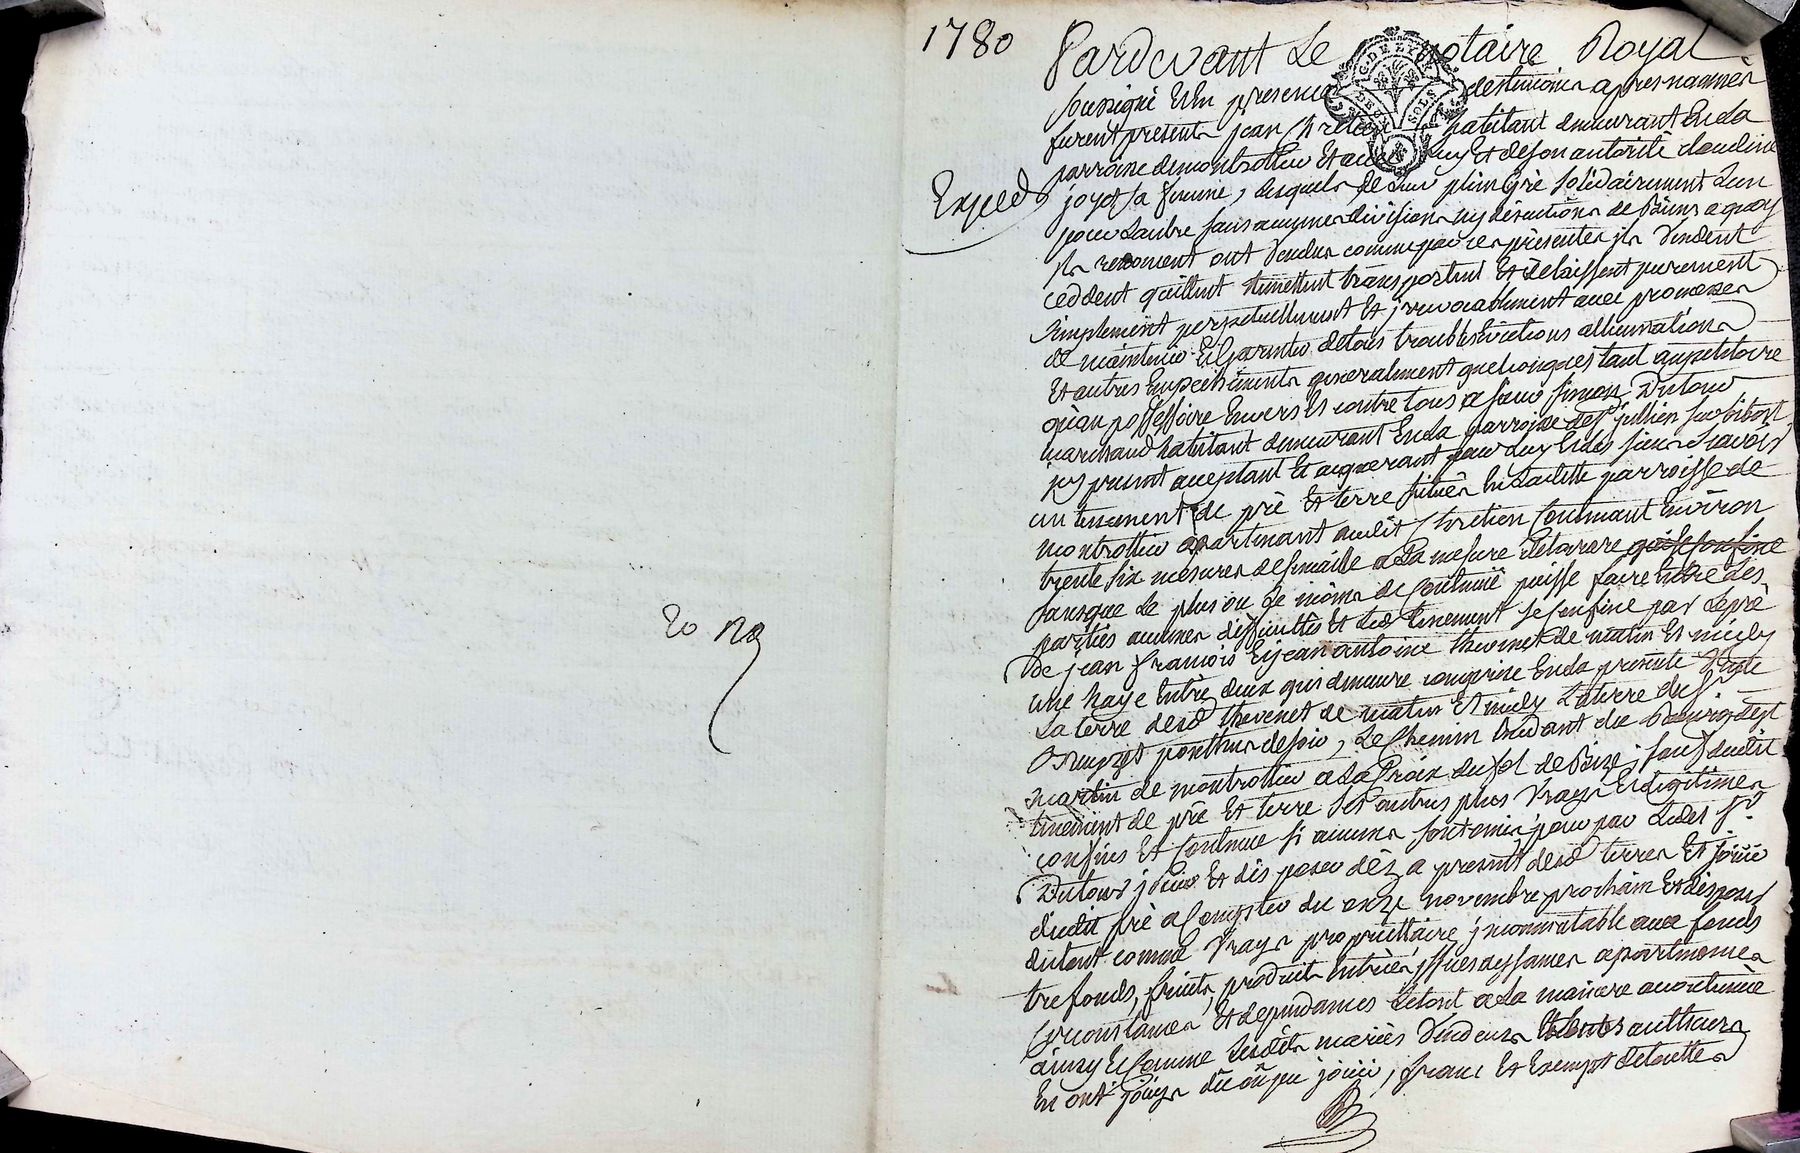 1780
Pardevant Le notaire Royal
soussigné Et En presence des temoins apres nommés
furent presents jean Chretien habitant demeurant En La
parroisse de montrottier Et de luy Et de son autorité claudine
Exped
joyet sa femme, lesquels de Leur plein gré solidairement L'un
pour L'autre sans aucunes division ny discution de Biens a quoy
ils renoncent ont Vendus comme par ces presentes ils Vendent
ceddent quittent remettent transportent Et delaissent purement
simplement perpetuellement Et jrrevocablement avec promesse
de maintenir Et garentir de tous troubles Evictions allienations
Et autres Empechements generalement quelconques tant au petitoire
qu'au possessoire Envers Et contre tous a sieur simon Dutour
marchand habitant demeurant En La parroisse de st jullien sur bibost
jcy present acceptant Et aquerant pour Luy Et Les siens scavoir
un tenement de pré Et terre situés En Laditte parroisse de
montrottier apartenant audit Chretien Contenant Environ
trente six mesures de semaille a La mesure de tarare qui se confine
sans que Le plus ou Le moins de Contenüe puisse faire Entre Les
parties aucunes difficultés Et Led. tenement se confine par Le pré
de jean francois Et jean antoine thevenet de matin Et midy
une haye Entre deux qui demeure comprise En La presente Vente
La terre desd. thevenet de matin Et midy La terre du sr.
ponthus de soir, Le Chemin tendant du Bourg dept
martin de montrottier a La Croix du sol de Bize; sauf dudit
tenement de pré Et terre ses autres plus Vrays Et Legitimes
confins Et Contenue si aucuns sont omis pour par Ledit sr.
Dutour jouir Et disposer dés a present desd. terres Et joüir
dudit pré a Compter du onze novembre prochain Et disposer
du tout comme Vrays proprietaire jncommutable aux fonds
trefonds, fruits, produits Entrées jssues aysances apartenances
Circonstances Et dependances Le tout a La maniere accoutumée
ainsy Et Comme Lesdits mariés Vendeurs Et Leurs autheurs
En ont joüys dû oû pu joüir, franc Et Exempt de toutes
20 ns